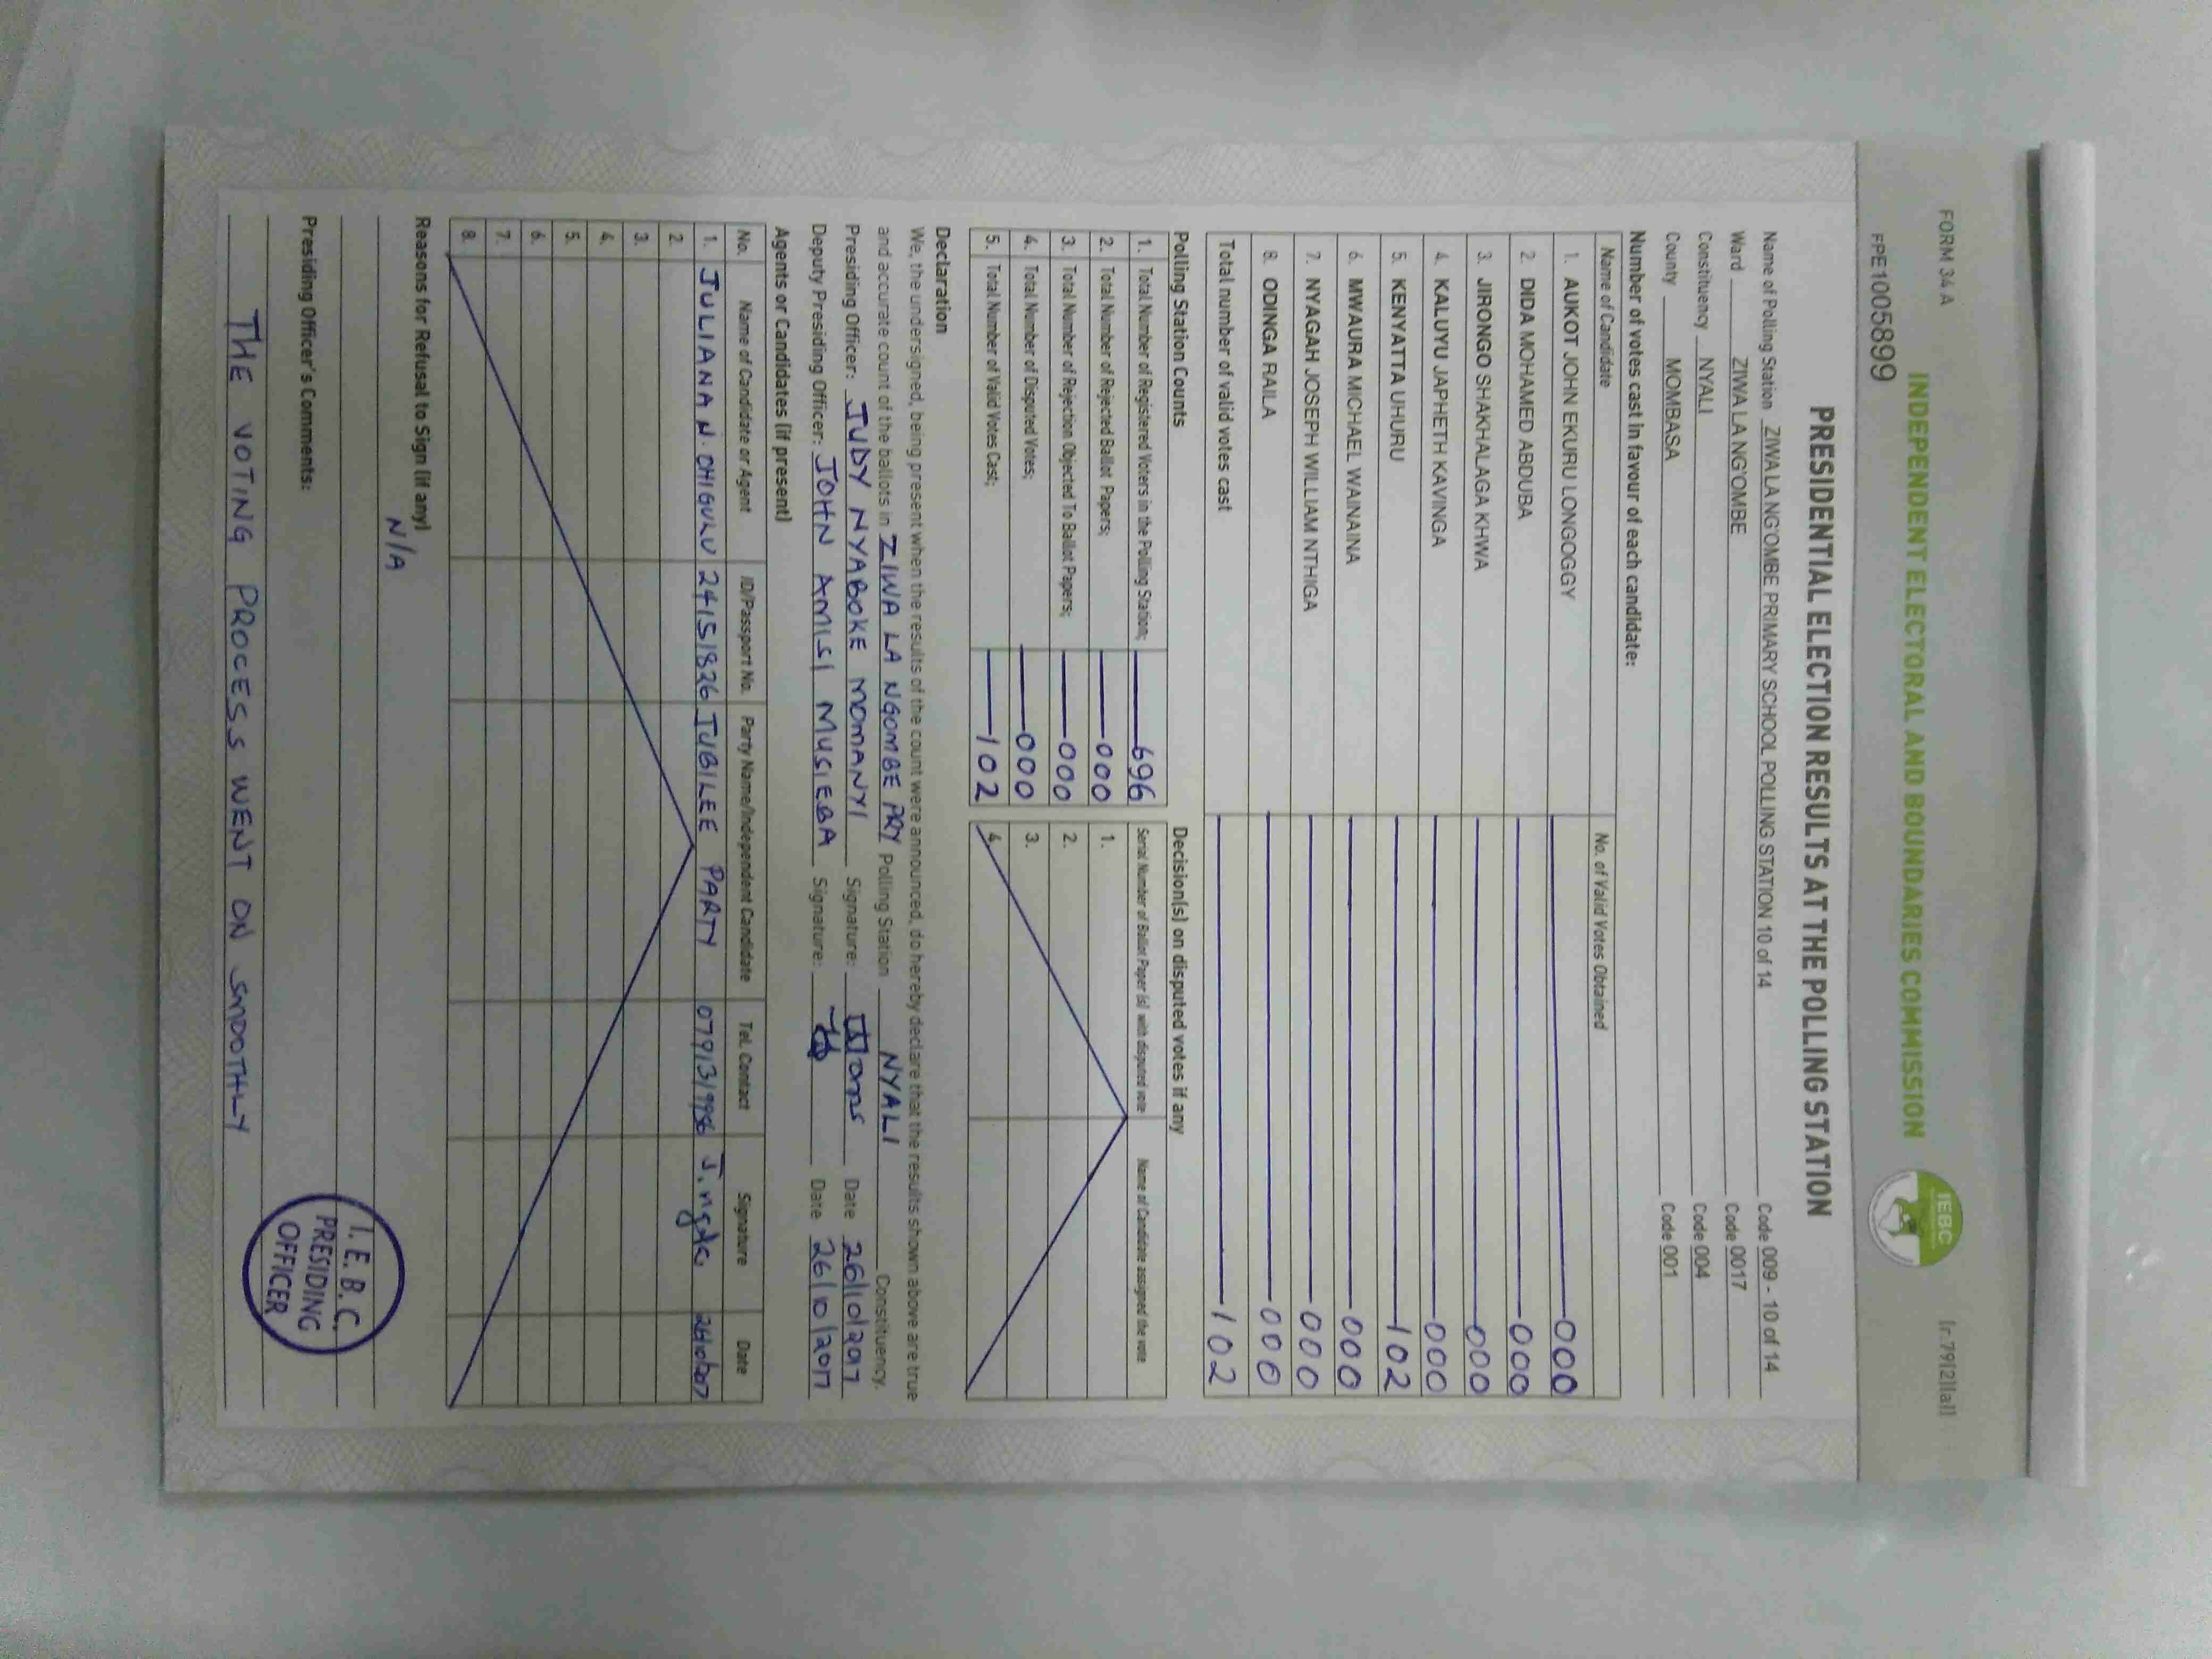 FORM 34 A
INDEPENDENT ELECTORAL AND BOUNDARIES COMMISSION
IEBC
(r.79(2)(a))
FPE1005899
PRESIDENTIAL ELECTION RESULTS AT THE POLLING STATION
Name of Polling Station ZIWA LA NG'OMBE PRIMARY SCHOOL POLLING STATION 10 of 14 Code 009 - 10 of 14
Ward ZIWA LA NG'OMBE Code 0017
Constituency NYALI Code 004
County MOMBASA Code 001
Number of votes cast in favour of each candidate:
Name of Candidate No. of Valid Votes Obtained
1. AUKOT JOHN EKURU LONGOGGY 000
2. DIDA MOHAMED ABDUBA 000
3. JIRONGO SHAKHALAGA KHWA 000
4. KALUYU JAPHETH KAVINGA 000
5. KENYATTA UHURU 102
6. MWAURA MICHAEL WAINAINA 000
7. NYAGAH JOSEPH WILLIAM NTHIGA 000
8. ODINGA RAILA 000
Total number of valid votes cast 102
Polling Station Counts Decision(s) on disputed votes if any
1. Total Number of Registered Voters in the Polling Station; 696 Serial Number of Ballot Paper (s) with disputed vote Name of Candidate assigned the vote
2. Total Number of Rejected Ballot Papers; 000 1.
3. Total Number of Rejection Objected To Ballot Papers; 000 2.
4. Total Number of Disputed Votes; 000 3.
5. Total Number of Valid Votes Cast; 102 4.
Declaration
We, the undersigned, being present when the results of the count were announced, do hereby declare that the results shown above are true
and accurate count of the ballots in ZIWA LA NGOMBE PRY Polling Station NYALI Constituency.
Presiding Officer: JUDY NYABOKE MOMANYI Signature: Date 26/10/2017
Deputy Presiding Officer: JOHN AMISI MUSIEBA Signature: Date 26/10/2017
Agents or Candidates (if present)
No. Name of Candidate or Agent ID/Passport No. Party Name/Independent Candidate Tel. Contact Signature Date
1. JULIANA N. CHIGULU 24151826 JUBILEE PARTY
2.
3.
4.
5.
6.
7.
8.
Reasons for Refusal to Sign (if any)
N/A
Presiding Officer's Comments:
THE VOTING PROCESS WENT ON SMOOTHLY
I. E. B. C.
PRESIDING
OFFICER